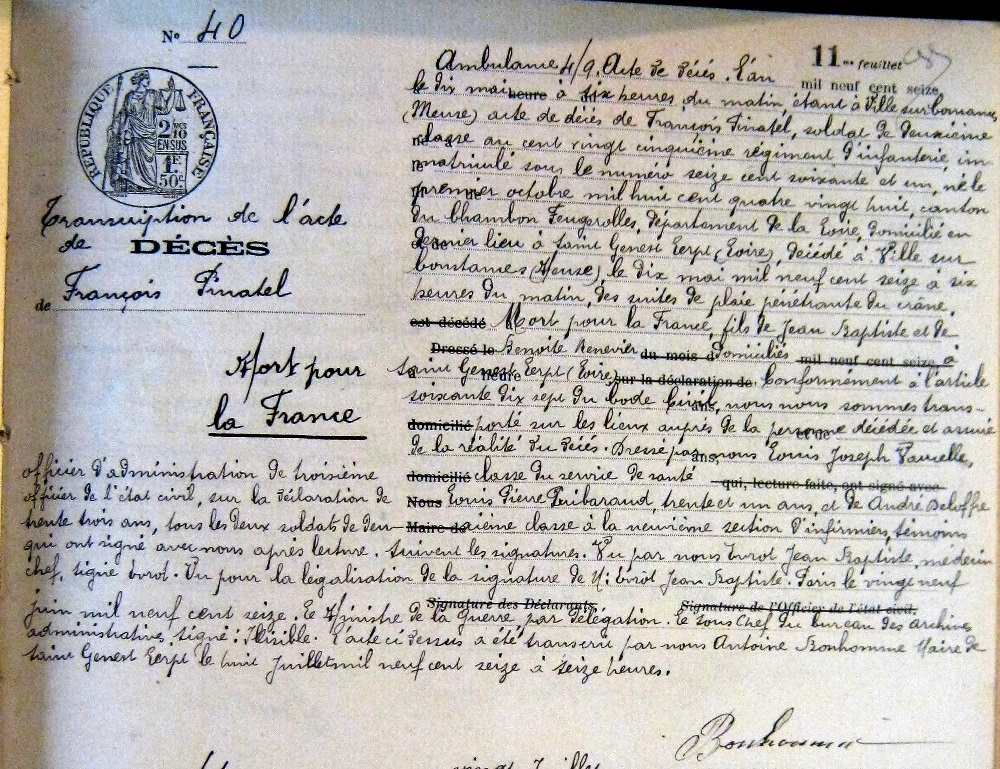 N° 40
11me feuillet
RÉPUBLIQUE FRANÇAISE
2/10 EN SUS
1F 50c
Transcription de l'acte
de DÉCÈS
de François Pinatel
Mort pour
la France
Ambulance 4/9. Acte de décès. L'an mil neuf cent seize
le dix mai heure à six heures du matin étant à Ville sur bousames
(Meuse) acte de décès de François Pinatel, soldat de deuxième
classe au cent vingt cinquième régiment d'infanterie im
matriculé sous le numéro seize cent soixante et un, né le
premier octobre mil huit cent quatre vingt huit, canton
du Chambon Feugerolles, département de la Loire, domicilié en
dernier lieu à Saint Genest Lerpt (Loire), décédé à Ville sur
bousames (Meuse) le dix mai mil neuf cent seize à six
heures du matin, des suites de plaie pénétrante du crâne.
est décédé Mort pour la France, fils de Jean Baptiste et de
Dressé le Benoite Renevier du mois d domiciliés mil neuf cent seize à
Saint Genest heure Lerpt (Loire) sur la déclaration de Conformément à l'article
soixante dix sept du Code Civil, ans, nous nous sommes trans-
domicilié porté sur les lieux auprès de la personne et de décédée et assuré
de la réalité du décès. Dressé par ans, nous Louis Joseph Vaucelles,
officier d'administration de troisième domicilié classe du service de santé qui, lecture faite, ont signé avec
officier de l'état civil, sur la déclaration de Nous Louis Pierre Guibaraud, trente et un ans, et de André Deloffre
trente trois ans, tous les deux soldats de deu- Maire de xième classe à la neuvième section d'infirmiers, témoins
qui ont signé avec nous après lecture. Suivent les signatures. Vu par nous Evrot Jean Baptiste, médecin
chef, signé Evrot. Vu pour la légalisation de la signature de M: Evrot Jean Baptiste. Paris le vingt neuf
Signature des Déclarants, Signature de l'Officier de l'état civil,
juin mil neuf cent seize. Le Ministre de la Guerre, par délégation. Le sous Chef du bureau des archives
administratives signé: Illisible. L'acte ci dessus a été transcrit par nous Antoine Bonhomme Maire de
Saint Genest Lerpt le huit Juillet mil neuf cent seize à seize heures.
Bonhomme